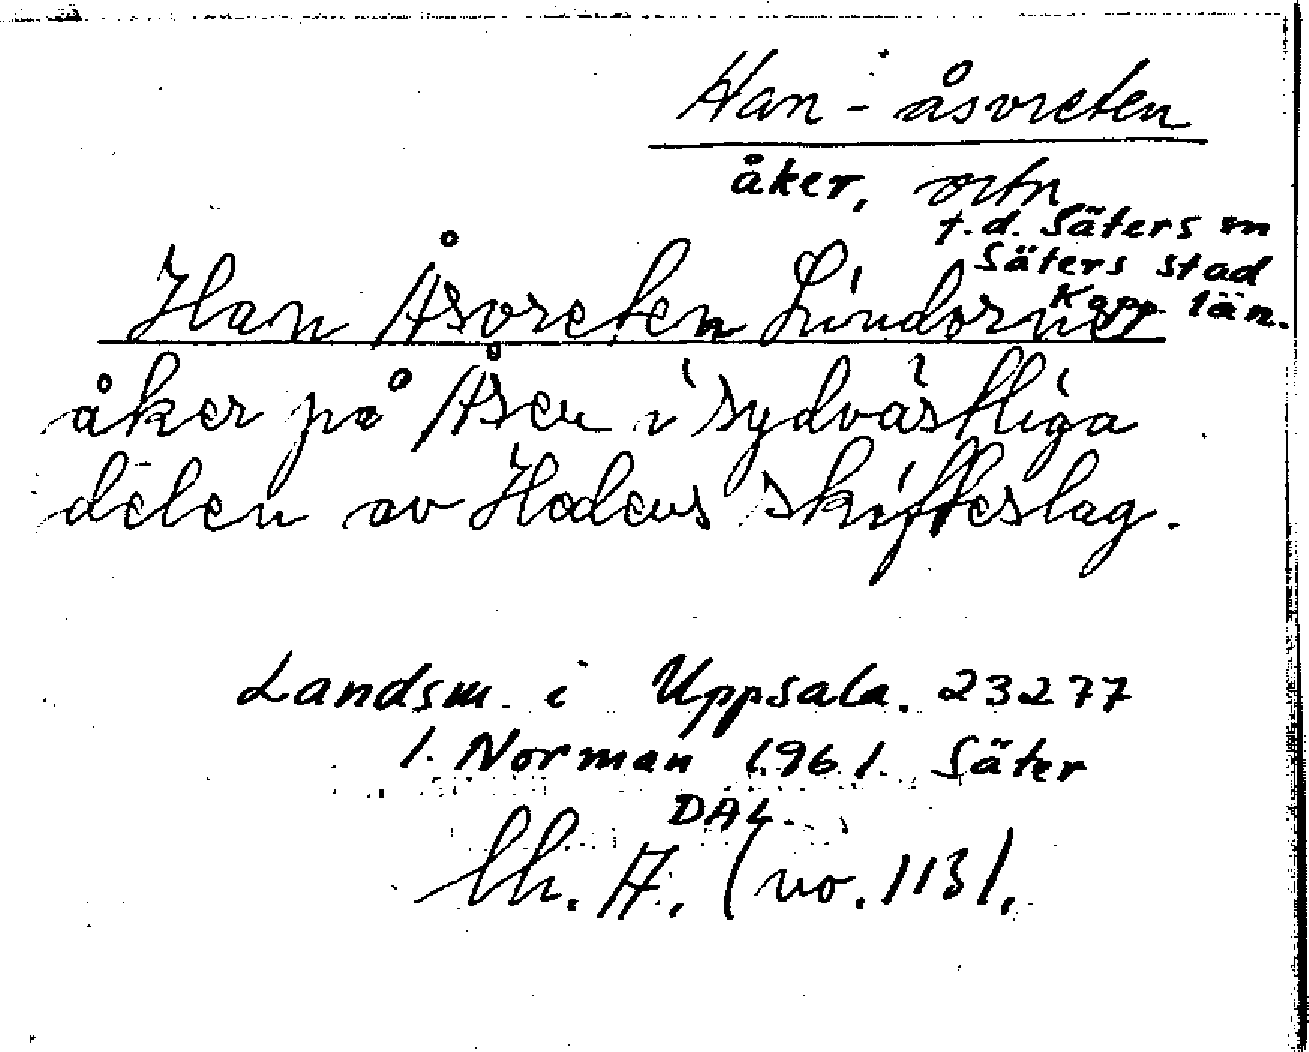 Han-åsvreten
åker, ortn
f.d. Säters sn
Säters stad
Kopp. län.
Han Åsvreten Lindorne
åker på Åsen i sydvästliga
delen av Hedens skifteslag.
Landsm. i Uppsala. 23277
I. Norman 1961. Säter
DAL.
(no. 113).